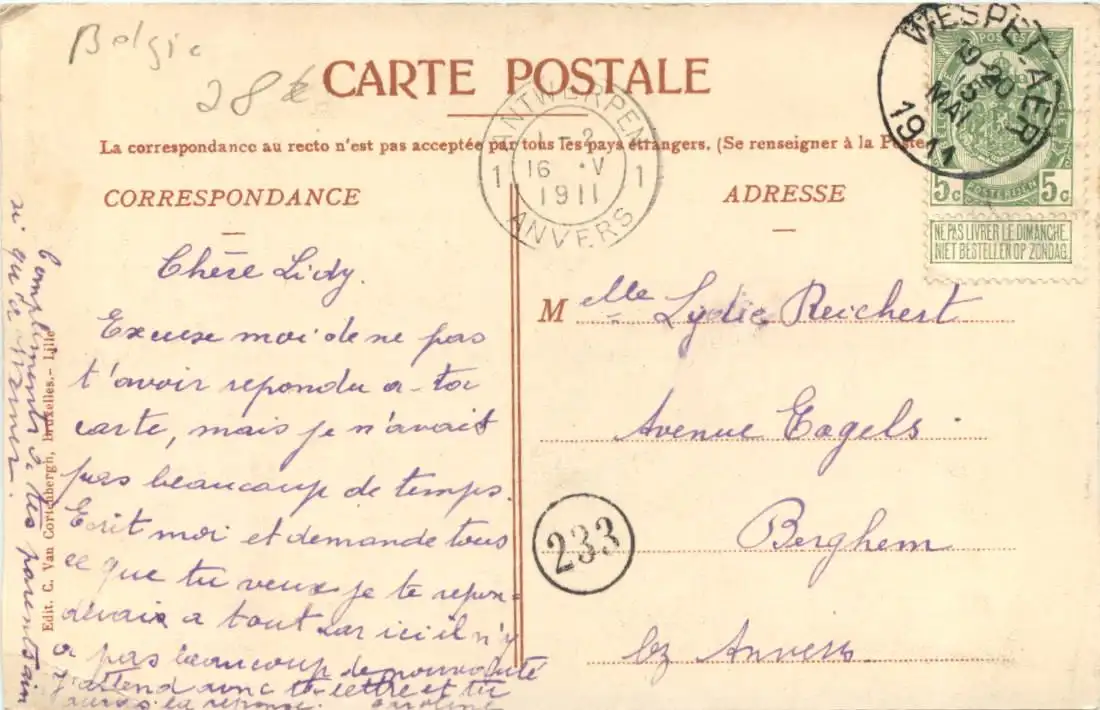 Belgie
28
CARTE POSTALE
La correspondance au recto n'est pas acceptée par tous les pays étrangers. (Se renseigner à la Poste
CORRESPONDANCE
Chère Lidy.
Excuse moi de ne pas
t'avoir repondu a ta
carte, mais je n'avais
pas beaucoup de temps.
Ecrit moi et demande tous
ce que tu veux je te repon-
derais a tout car ici il n'y
a pas beaucoup de nouveauté
J'attend avec ta lettre et tu
auras la reponse. Caroline
Compliments a tes parents ain
si qu'a
Edit. C. Van Cortenbergh, Bruxelles.- Lille
ANTWERPEN
1 1-2 1
16 V
1911
ANVERS
WESPELAER
19-20
15
MAI
1911
POSTES
POSTERIJEN
5c 5c
NE PAS LIVRER LE DIMANCHE
NIET BESTELLEN OP ZONDAG
ADRESSE
Melle Lydie Reichert
Avenue Cogels
Berghem
lez Anvers
233